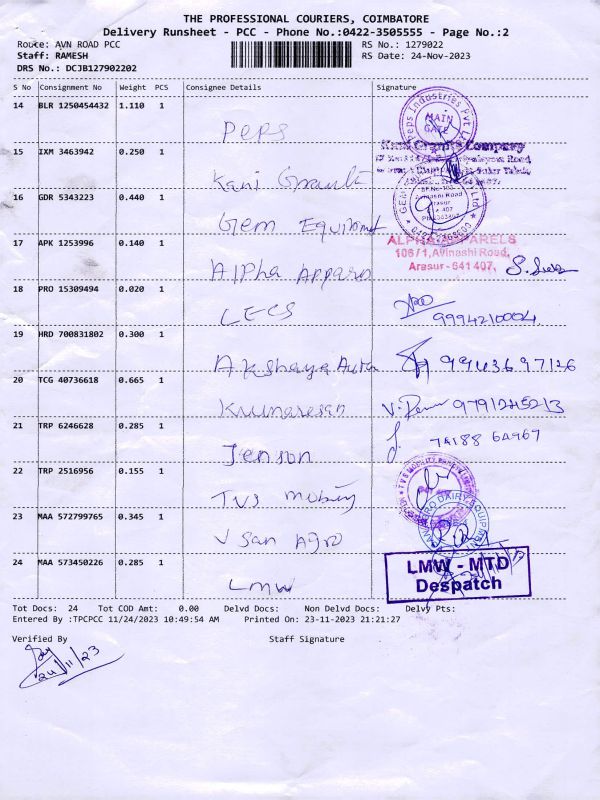 THE PROFESSIONAL COURIERS, COIMBATORE
Delivery Runsheet - PCC - Phone No.:0422-3505555 - Page No.:2
Route: AVN ROAD PCC RS No.: 1279022
Staff: RAMESH RS Date: 24-Nov-2023
DRS No.: DCJB127902202
S No Consignment No Weight PCS Consignee Details Signature
14 BLR 1250454432 1.110 1 Peps Peps Industries Pvt Ltd MAIN GATE
15 IXM 3463942 0.250 1 Kani Company
16 GDR 5343223 0.440 1 Gem Equipment GEM Avinashi Road Arasur
17 APK 1253996 0.140 1 Alpha ALPHA APPARELS
106/1, Avinashi Road,
Arasur - 641 407.
18 PRO 15309494 0.020 1 LECS 9994210004
19 HRD 700831802 0.300 1 Akshaya Auto 99436 97126
20 TCG 40736618 0.665 1 Kumaresan 9791245213
21 TRP 6246628 0.285 1 Jenson
22 TRP 2516956 0.155 1 TVS Mobility
23 MAA 572799765 0.345 1 V San Agro DAIRY EQUIPMENT
24 MAA 573450226 0.285 1 LMW LMW - MTD
Despatch
Tot Docs: 24 Tot COD Amt: 0.00 Delvd Docs: Non Delvd Docs: Delvy Pts:
Entered By :TPCPCC 11/24/2023 10:49:54 AM Printed On: 23-11-2023 21:21:27
Verified By Staff Signature
24/11/23